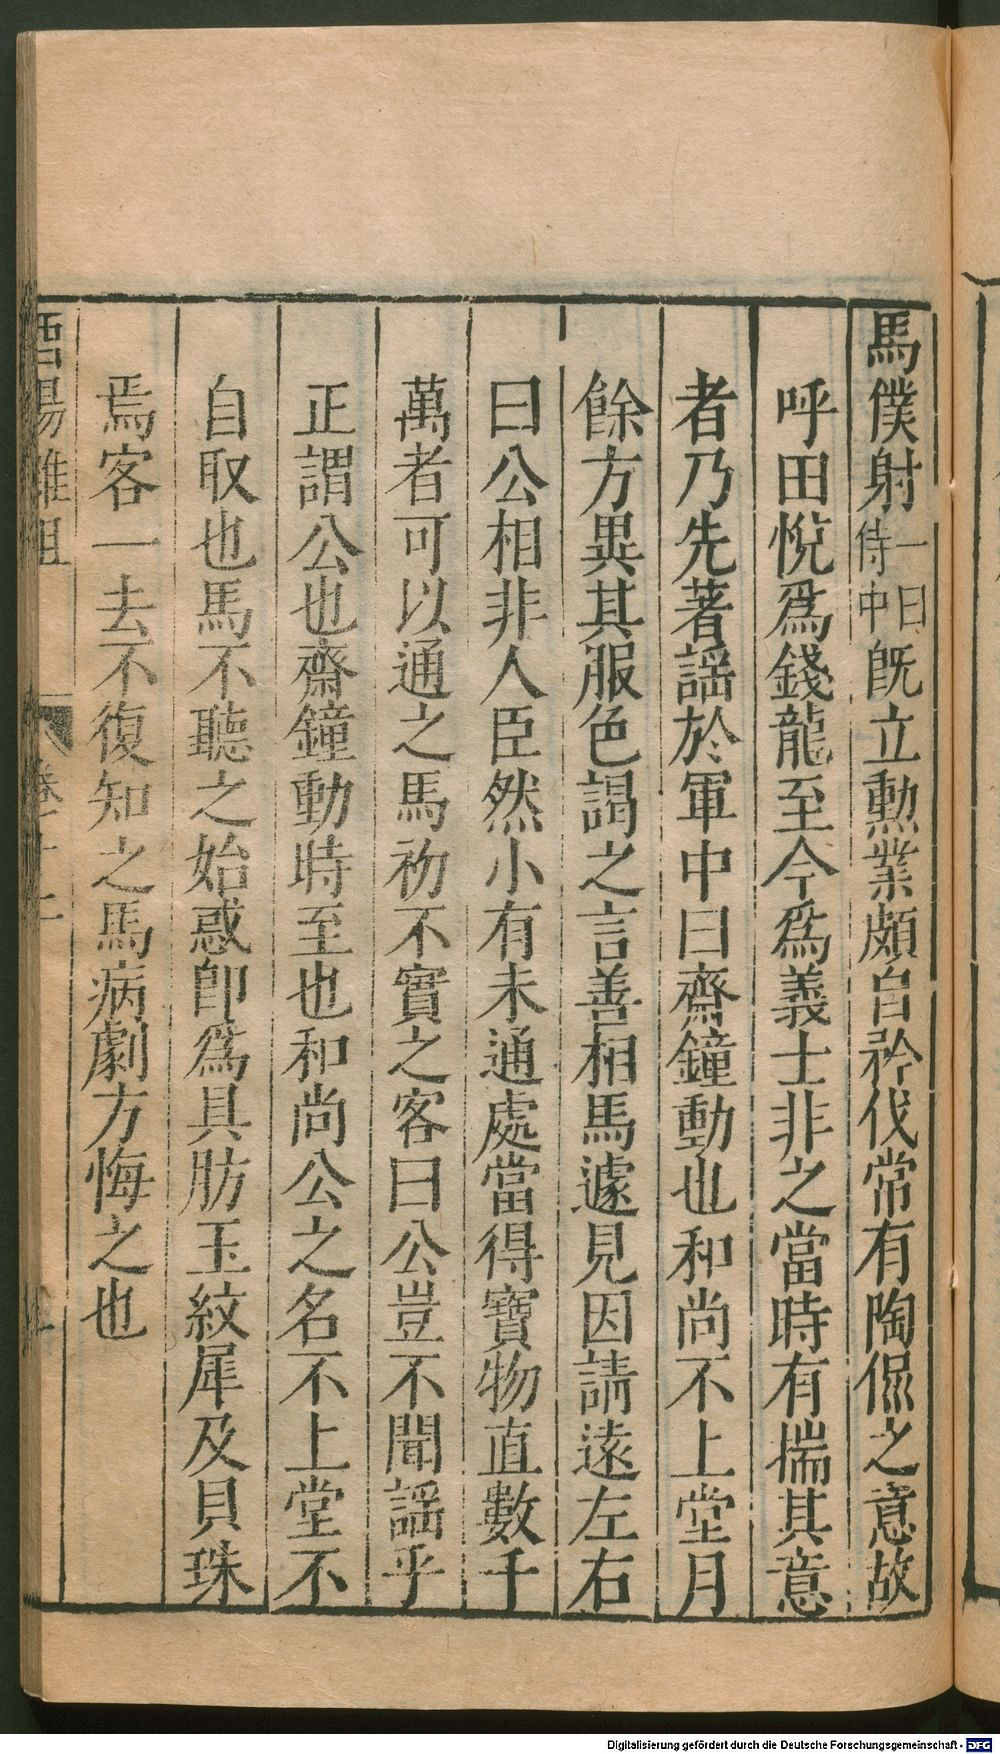 馬僕射一曰侍中既立勲業頗自矜伐常有陶侃之意故
呼田悅爲錢龍至今爲義士非之當時有揣其意
者乃先著謡於軍中曰齋鐘動也和尚不上堂月
餘方異其服色謁之言善相馬遽見因請逺左右
曰公相非人臣然小有未通處當得寶物直數千
萬者可以通之馬初不實之客曰公豈不聞謡乎
正謂公也齋鐘動時至也和尚公之名不上堂不
自取也馬不聽之始惑卽爲具肪玉紋犀及貝珠
焉客一去不復知之馬病劇方悔之也
酉陽雜俎 卷十二
Digitalisierung gefördert durch die Deutsche Forschungsgemeinschaft - DFG